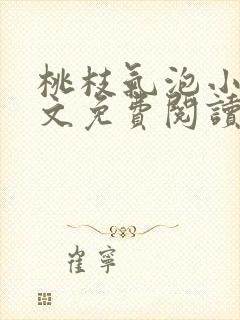 桃枝氣泡小
文免費閱讀
崔寧